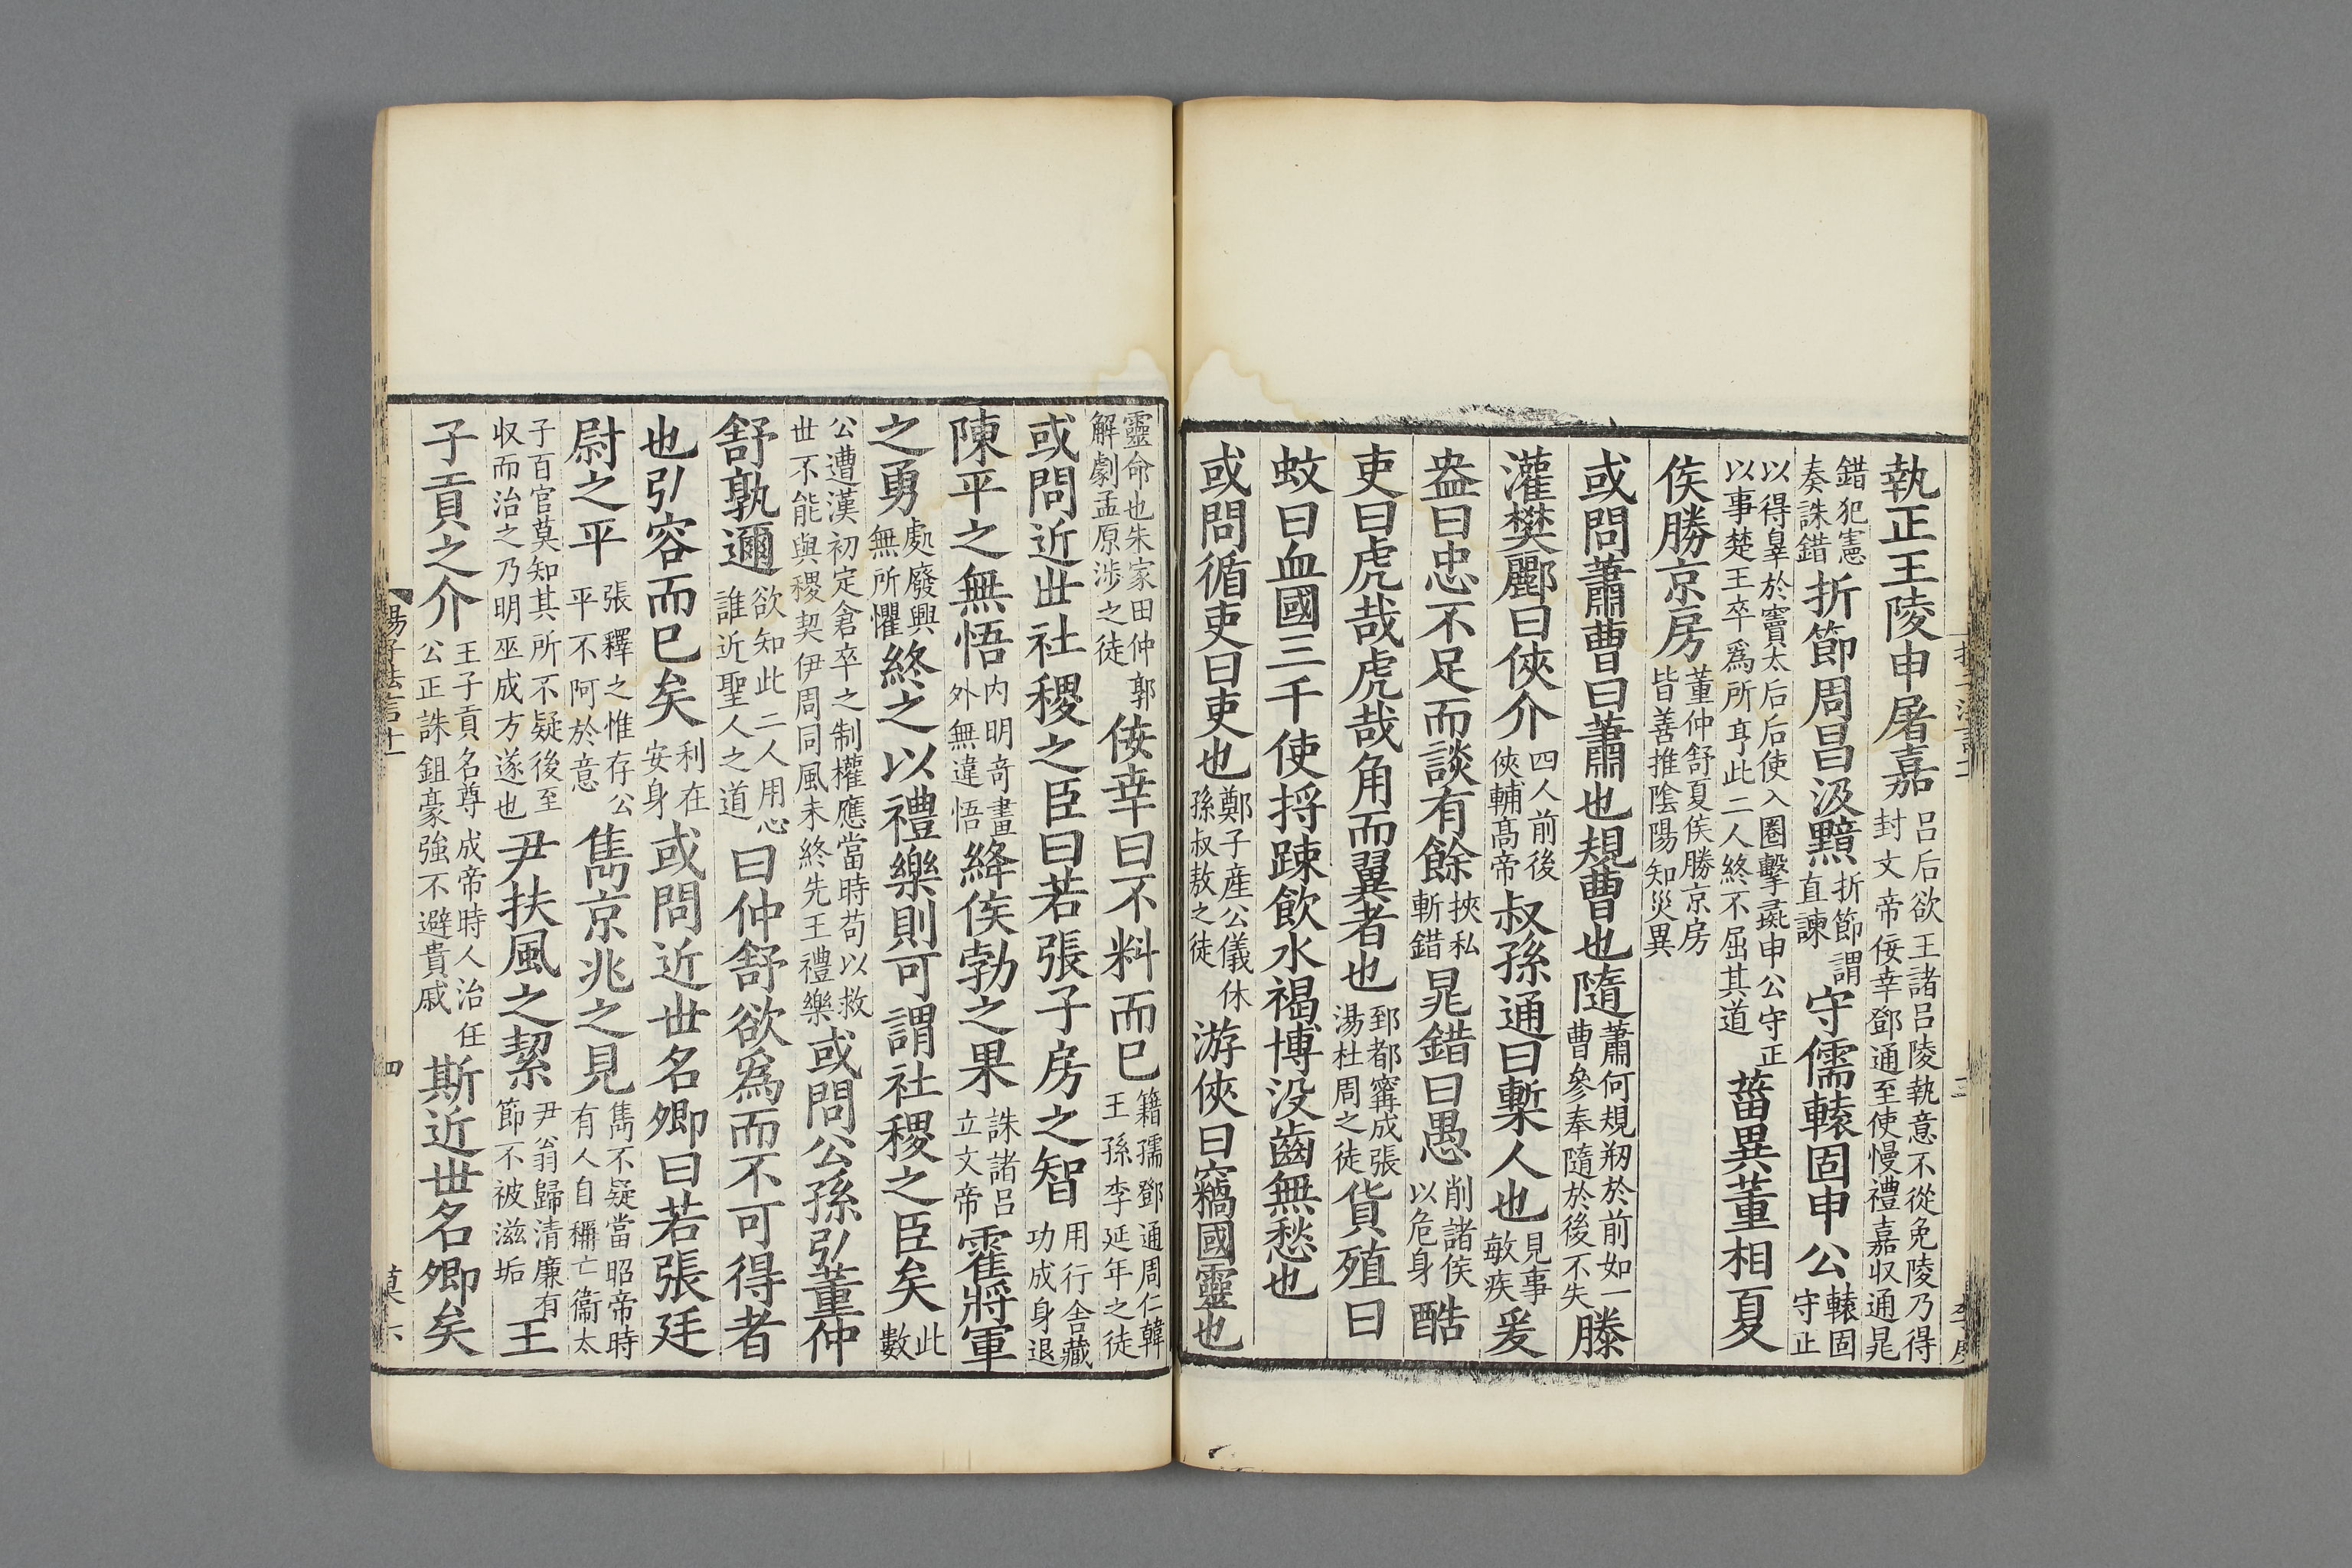 執正王陵申屠嘉吕后欲王諸吕陵執意不從免陵乃得封文帝佞幸鄧通至使慢禮嘉収通晁
錯犯憲奏誅錯折節周昌汲黯折節謂直諫守儒轅固申公轅固守正
以得辠於竇太后后使入圈擊彘申公守正以事楚王卒爲所亨此二人終不屈其道菑異董相夏
侯勝京房董仲舒夏侯勝京房皆善推陰陽知災異
或問蕭曹曰蕭也規曹也隨蕭何規刱於前如一曹參奉隨於後不失滕
灌樊酈曰俠介四人前後俠輔髙帝叔孫通曰槧人也見事敏疾爰
盎曰忠不足而談有餘挾私斬錯晁錯曰愚削諸侯以危身酷
吏曰虎哉虎哉角而翼者也郅都甯成張湯杜周之徒貨殖曰
蚊曰血國三千使捋踈飲水褐博没齒無愁也
或問循吏曰吏也鄭子産公儀休孫叔敖之徒游俠曰竊國靈也
靈命也朱家田仲郭解劇孟原涉之徒佞幸曰不料而已籍孺鄧通周仁韓王孫李延年之徒
或問近世社稷之臣曰若張子房之智用行舍藏功成身退
陳平之無悟内明奇畫外無違悟絳侯勃之果誅諸吕立文帝霍將軍
之勇處廢興無所懼終之以禮樂則可謂社稷之臣矣此數
公遭漢初定倉卒之制權應當時苟以救世不能與稷契伊周同風未終先王禮樂或問公孫弘董仲
舒孰邇欲知此二人用心誰近聖人之道曰仲舒欲爲而不可得者
也弘容而已矣利在安身或問近世名卿曰若張廷
尉之平張釋之惟存公平不阿於意雋京兆之見雋不疑當昭帝時有人自稱亡衞太
子百官莫知其所不疑後至収而治之乃明巫成方遂也尹扶風之絜尹翁歸清廉有節不被滋垢王
子貢之介王子貢名尊成帝時人治任公正誅鉏豪強不避貴戚斯近世名卿矣
楊子法言十一
四